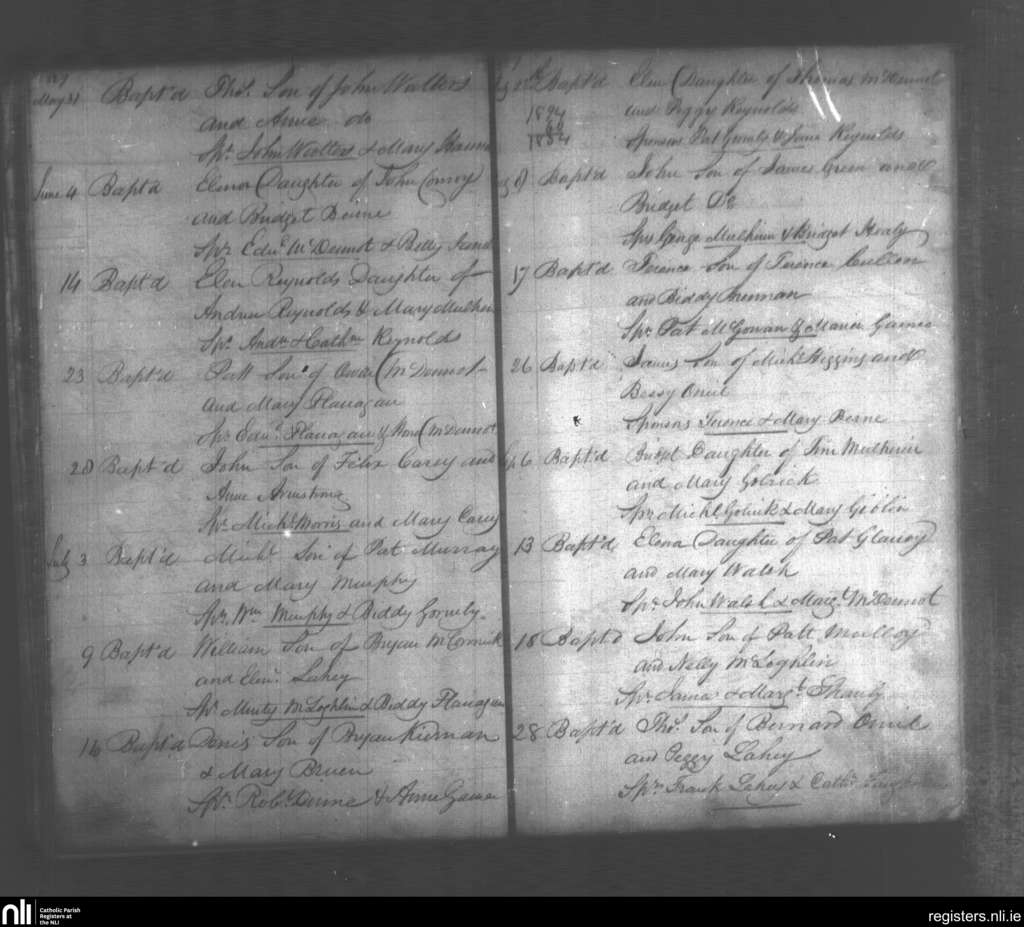 May 31 Bapt'd Thos. Son of John Wolters
and Anne do
Spr. John Wolters & Mary
June 4 Bapt'd Elenor Daughter of John Conroy
and Bridget Beirne
Spr. Edwd. McDermot & Betty
14 Bapt'd Elen Reynolds Daughter of
Andrew Reynolds & Mary Mulhern
Spr. Andw. & Cathn. Reynolds
23 Bapt'd Patt Son of Owen McDermot
and Mary Flanagan
Spr. Edwd. Flanagan & McDermot
28 Bapt'd John Son of Felix Carey and
Anne Armstrong
Spr. Michl. Morris and Mary Carey
July 3 Bapt'd Michl. Son of Pat Murray
and Mary Murphy
Spr. Wm. Murphy & Biddy Gormly
9 Bapt'd William Son of Bryan McCormick
and Elinr. Lahey
Spr. McLoghlin & Biddy Flanagan
16 Bapt'd Denis Son of Bryan Kiernan
& Mary Bruen
Spr. Robt. Dunne & Anne
Bapt'd Elen Daughter of Thomas McDermot
and Peggy Reynolds
Sponsors Pat Gormly & Jane Reynolds
Bapt'd John Son of James Green and
Bridget Do
Sprs George Mulhern & Bridget Healy
17 Bapt'd Terence Son of Terence Cullen
and Biddy Brennan
Spr. Pat McGowan & Maria
26 Bapt'd James Son of Michl. Higgins and
Bessy Oneil
Sponsors Terence & Mary Berne
6 Bapt'd Bridget Daughter of Tim Mulhern
and Mary Golrick
Spr. Michl. Golrick & Mary Giblin
13 Bapt'd Elena Daughter of Pat Glancy
and Mary Walsh
Spr. John Walsh & Margt. McDermot
18 Bapt'd John Son of Patt Mulloy
and Nelly McLoghlin
Spr. James & Margt.
28 Bapt'd Thos. Son of Bernard Oneil
and Peggy Lahey
Spr. Frank Lahey & Cathn.
nli Catholic Parish
Registers at
the NLI
registers.nli.ie